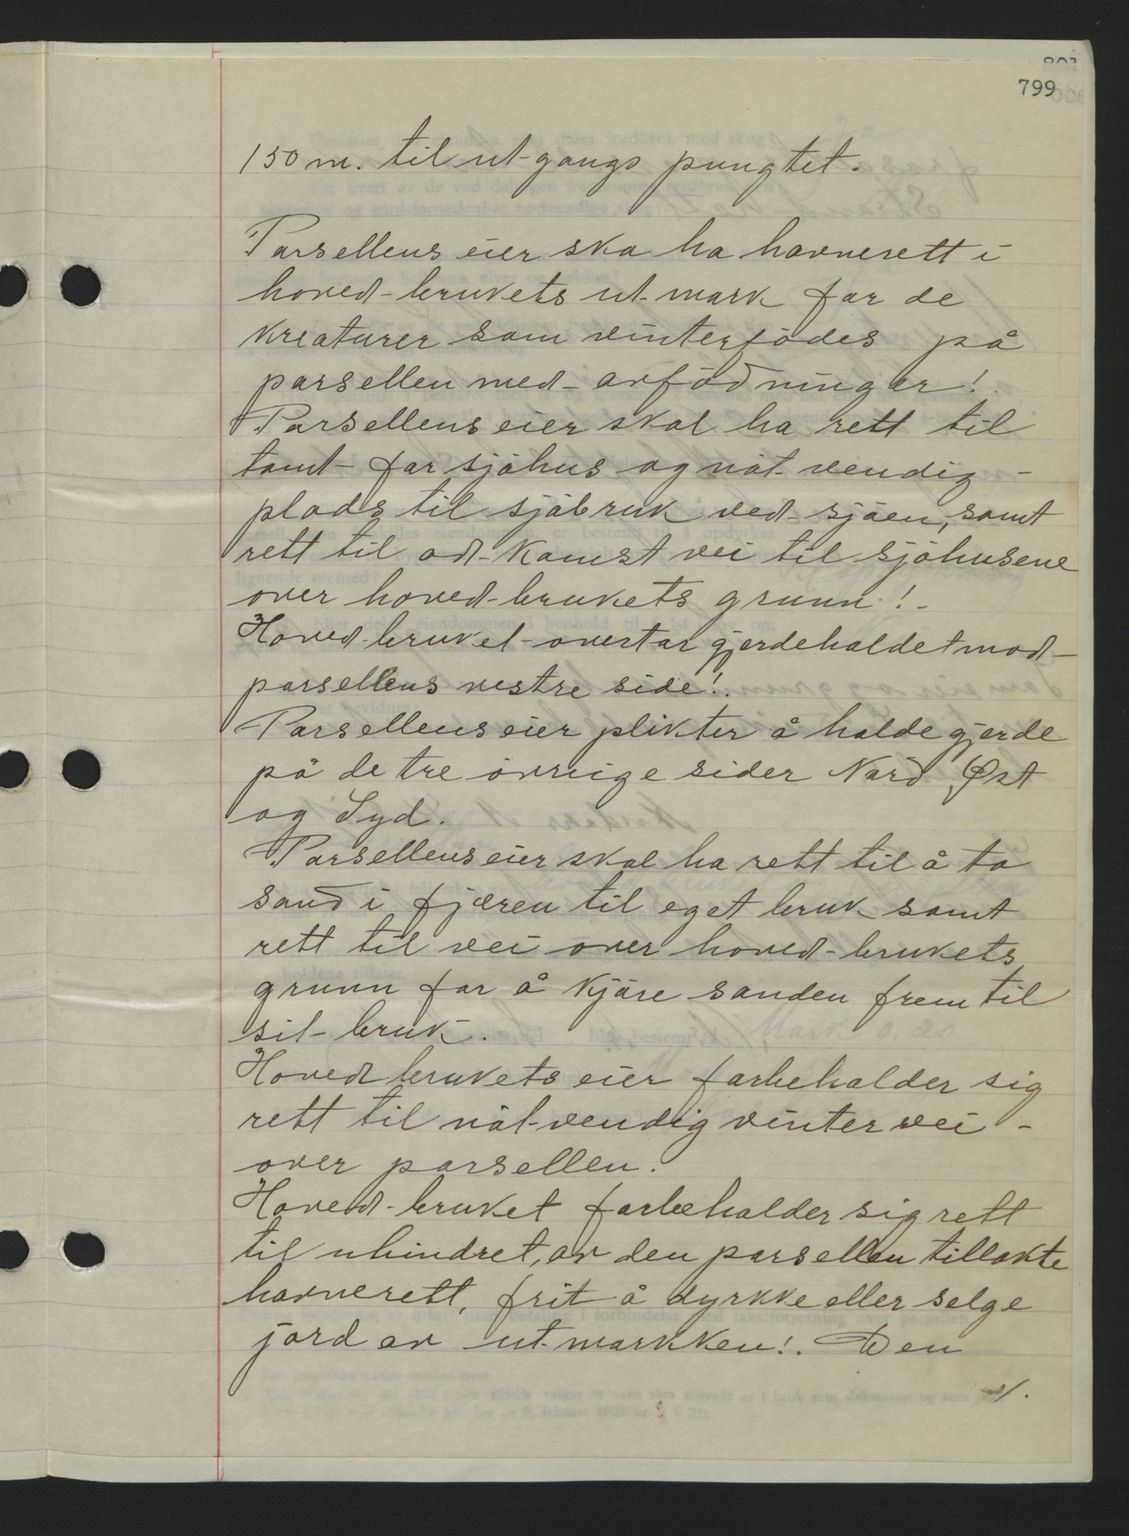 799
150 m. til ut-gangs pungtet.
Parsellens eier ska ha havnerett i
hoved-brukets ut-mark for de
kreaturer som vinterfödes på
parsellen med-avfödninger!
Parsellens eier skal ha rett til
tomt- for sjöhus og nöt-vendig-
plads til sjöbruk ved-sjöen, samt
rett til ad-komst vei til sjöhusene
over hoved-brukets grunn!-
Hoved-bruket-overtar gjerdeholdet mod-
parsellens vestre side!.
Parsellens eier plikter å holde gjerde
på de tre övrige sider Nord, Øst
og Syd.
Parsellens eier skal ha rett til å ta
sand i fjæren til eget bruk samt
rett til vei over hoved-brukets
grunn for å kjöre sanden frem til
sit-bruk.
Hovedbrukets eier forbeholder sig
rett til nöt-vendig vinter vei-
over parsellen.
Hoved-bruket forbeholder sig rett
til uhindret, av den parsellen tillakte
havnerett, frit å dyrkke eller selge
jord av ut-markken!. Den
./.